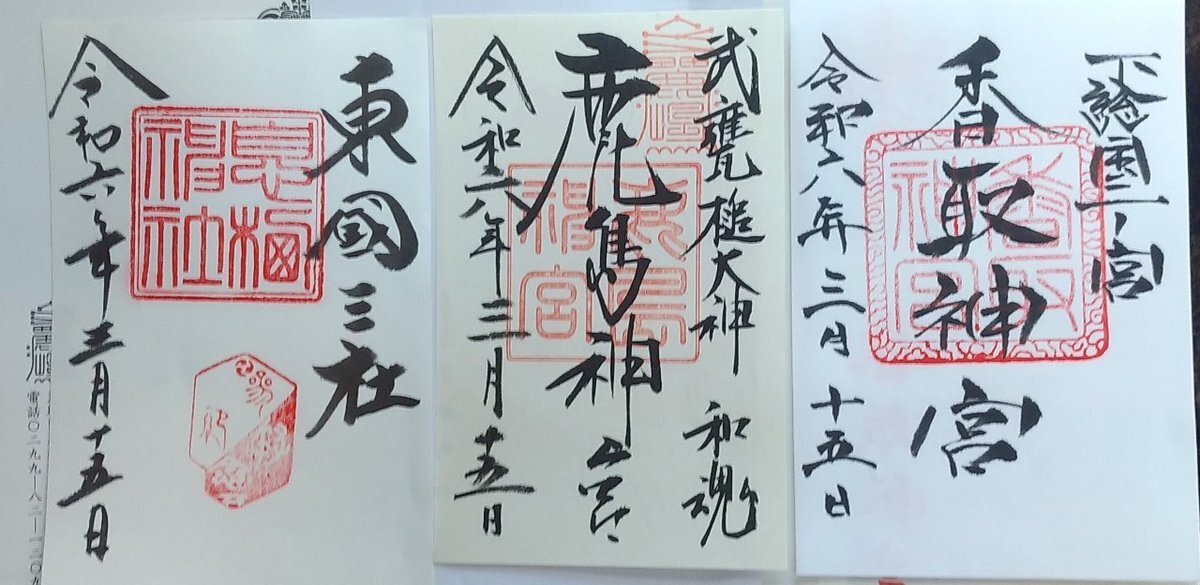 下総国一ノ宮
香取神宮
香取神宮
令和六年三月十五日
武甕槌大神 和魂
鹿島神宮
鹿島神宮
令和六年三月十五日
東國三社
息栖神社
令和六年三月十五日
電話〇二九九―八二―一二〇九